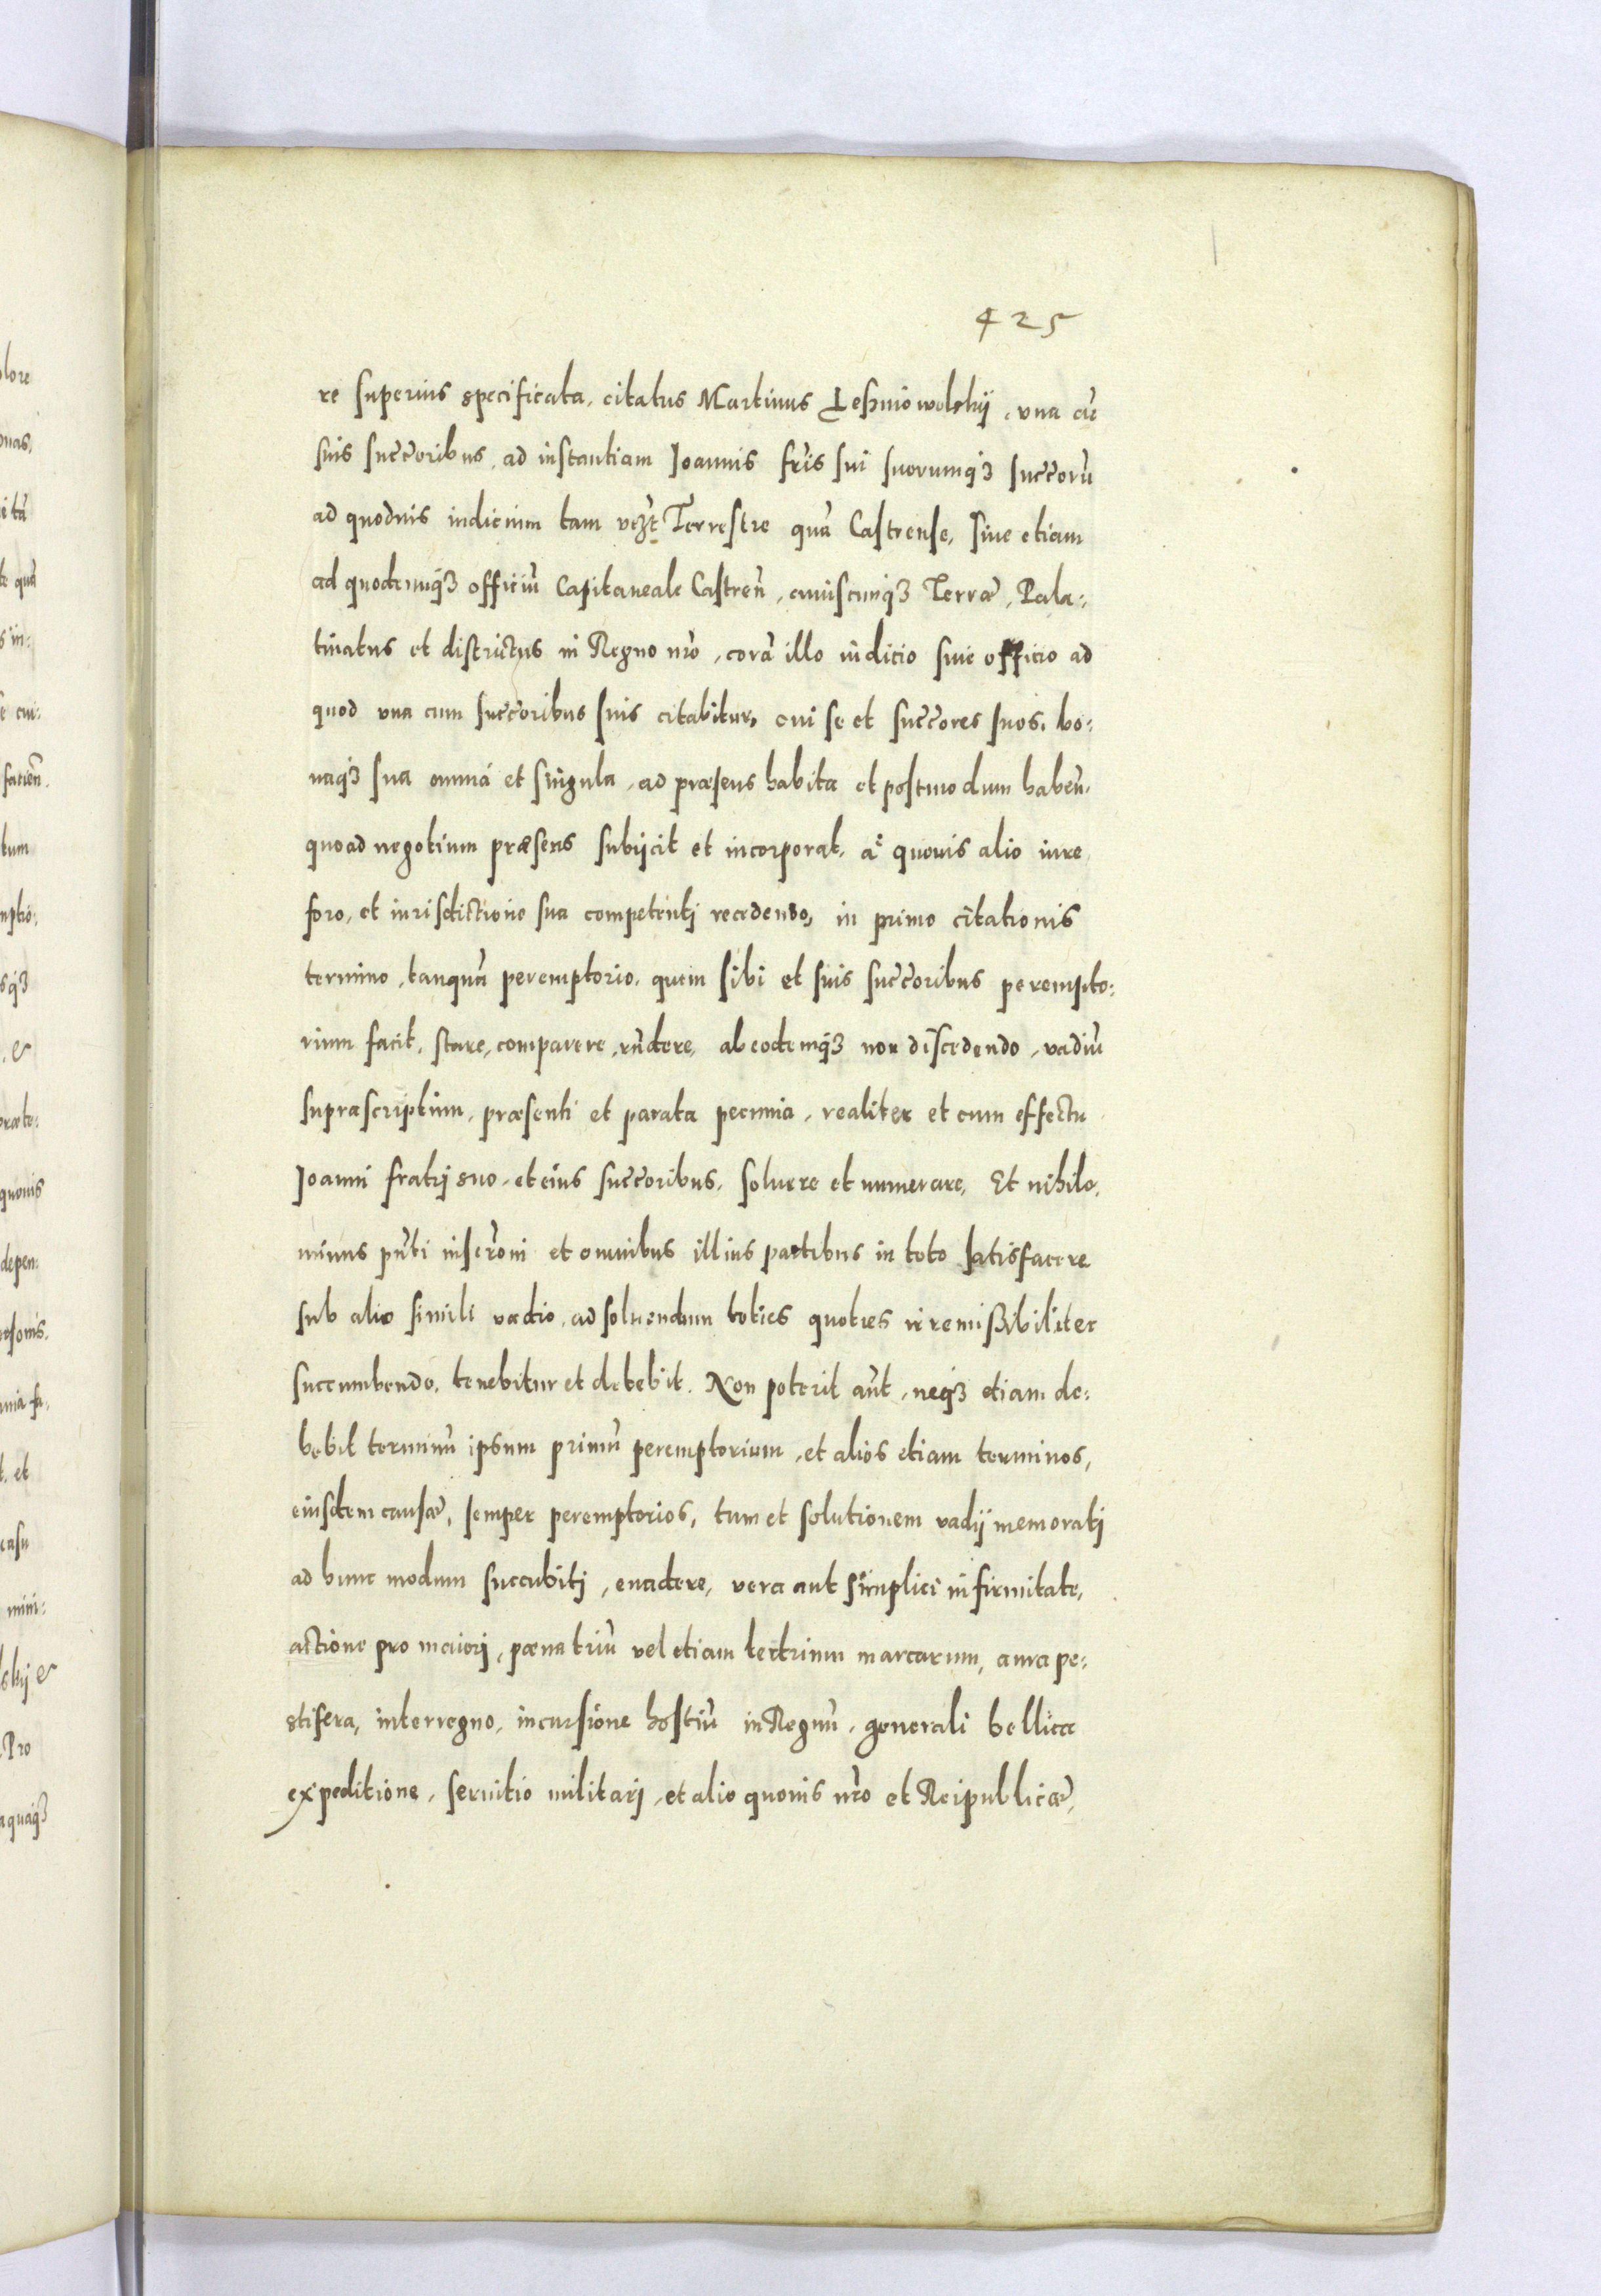 425
re superius specificata, citatus Martinus Leßniowolskij, vna cū
suis succ̄oribus, ad instantiam Joannis fr̄is sui suorumq3 succ̄orū
ad quoduis iudicium tam vꝫt Terrestre quā Castrense, siue etiam
ad quodcunq3 officiū Capitaneale Castren̄, cuiuscunq3 Terræ, Pala:
tinatus et districtus in Regno nr̄o, corā illo iudicio siue officio ad
quod vna cum succ̄oribus suis citabitur, cui se et succ̄ores suos, bo:
naq3 sua omnia et singula, ad præsens habita et postmodum haben̄,
quoad negotium præsens subijcit et incorporat, à quouis alio iure
foro, et iurisdictione sua competentj recedendo, in primo citationis
termino, tanquā peremptorio, quem sibi et suis succ̄oribus perempto:
rium facit, stare, comparere, rn̄dere, ab eodemq3 non discedendo, vadiū
supræscriptum, præsenti et parata pecunia, realiter et cum effectu
Joanni fratrj suo, et eius succ̄oribus, soluere et numerare, Et nihilo,
minus pn̄ti inscr̄oni et omnibus illius partibus in toto satisfacere
sub alio simili vadio, ad soluendum toties quoties irremißibiliter
succumbendo, tenebitur et debebit. Non poterit aūt, neq3 etiam de:
bebit terminū ipsum primū peremptorium, et alios etiam terminos,
eiusdem causæ, semper peremptorios, tum et solutionem vadij memoratj
ad hunc modum succubitj, euadere, vera aut simplici infirmitate,
actione pro maiorj, pæna triū vel etiam tertrium marcarum, aura pe:
stifera, interregno, incursione hostiū in Regnū, generali bellica
expeditione, seruitio militarj, et alio quouis nr̄o et Reipublicæ,